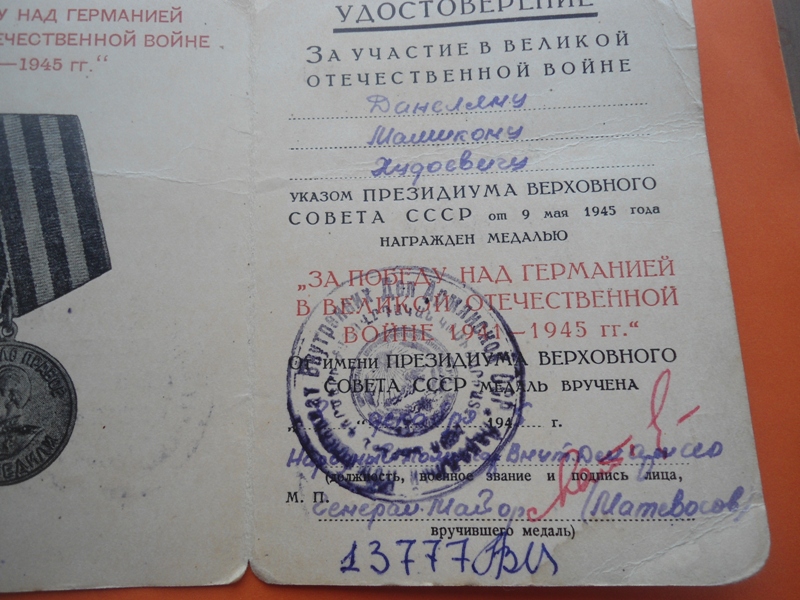 У НАД ГЕРМАНИЕЙ
ЕЧЕСТВЕННОЙ ВОЙНЕ
—1945 гг."
УДОСТОВЕРЕНИЕ
ЗА УЧАСТИЕ В ВЕЛИКОЙ
ОТЕЧЕСТВЕННОЙ ВОЙНЕ
Данеляну
Мамикону
Худоевичу
УКАЗОМ ПРЕЗИДИУМА ВЕРХОВНОГО
СОВЕТА СССР от 9 мая 1945 года
НАГРАЖДЕН МЕДАЛЬЮ
„ЗА ПОБЕДУ НАД ГЕРМАНИЕЙ
В ВЕЛИКОЙ ОТЕЧЕСТВЕННОЙ
ВОЙНЕ 1941—1945 гг."
От имени ПРЕЗИДИУМА ВЕРХОВНОГО
СОВЕТА СССР МЕДАЛЬ ВРУЧЕНА
194 г.
Народный Внут. Дел
(должность, военное звание и подпись лица,
М. П. Генерал-Майор (Матевосов)
вручившего медаль)
13777
Внутренних Дел Армянской ССР